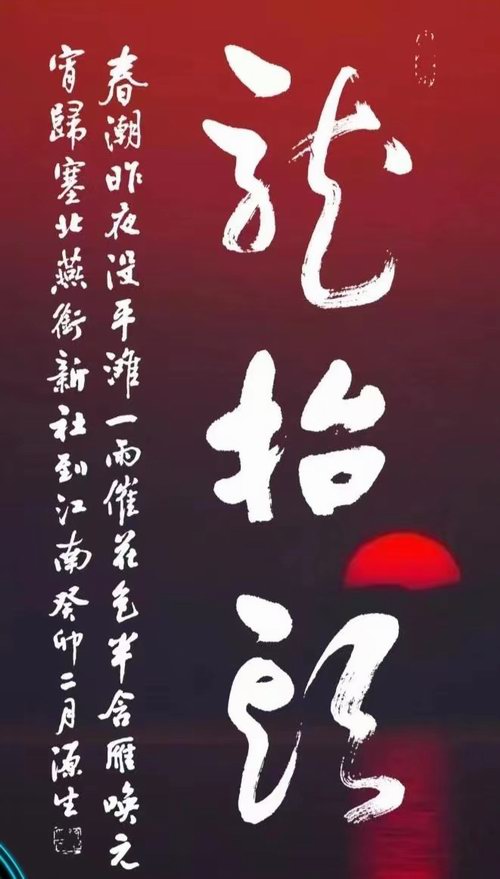 龍抬頭
春潮昨夜没平滩一雨催花色半含雁唤元
宵歸塞北燕衔新社到江南癸卯二月源生